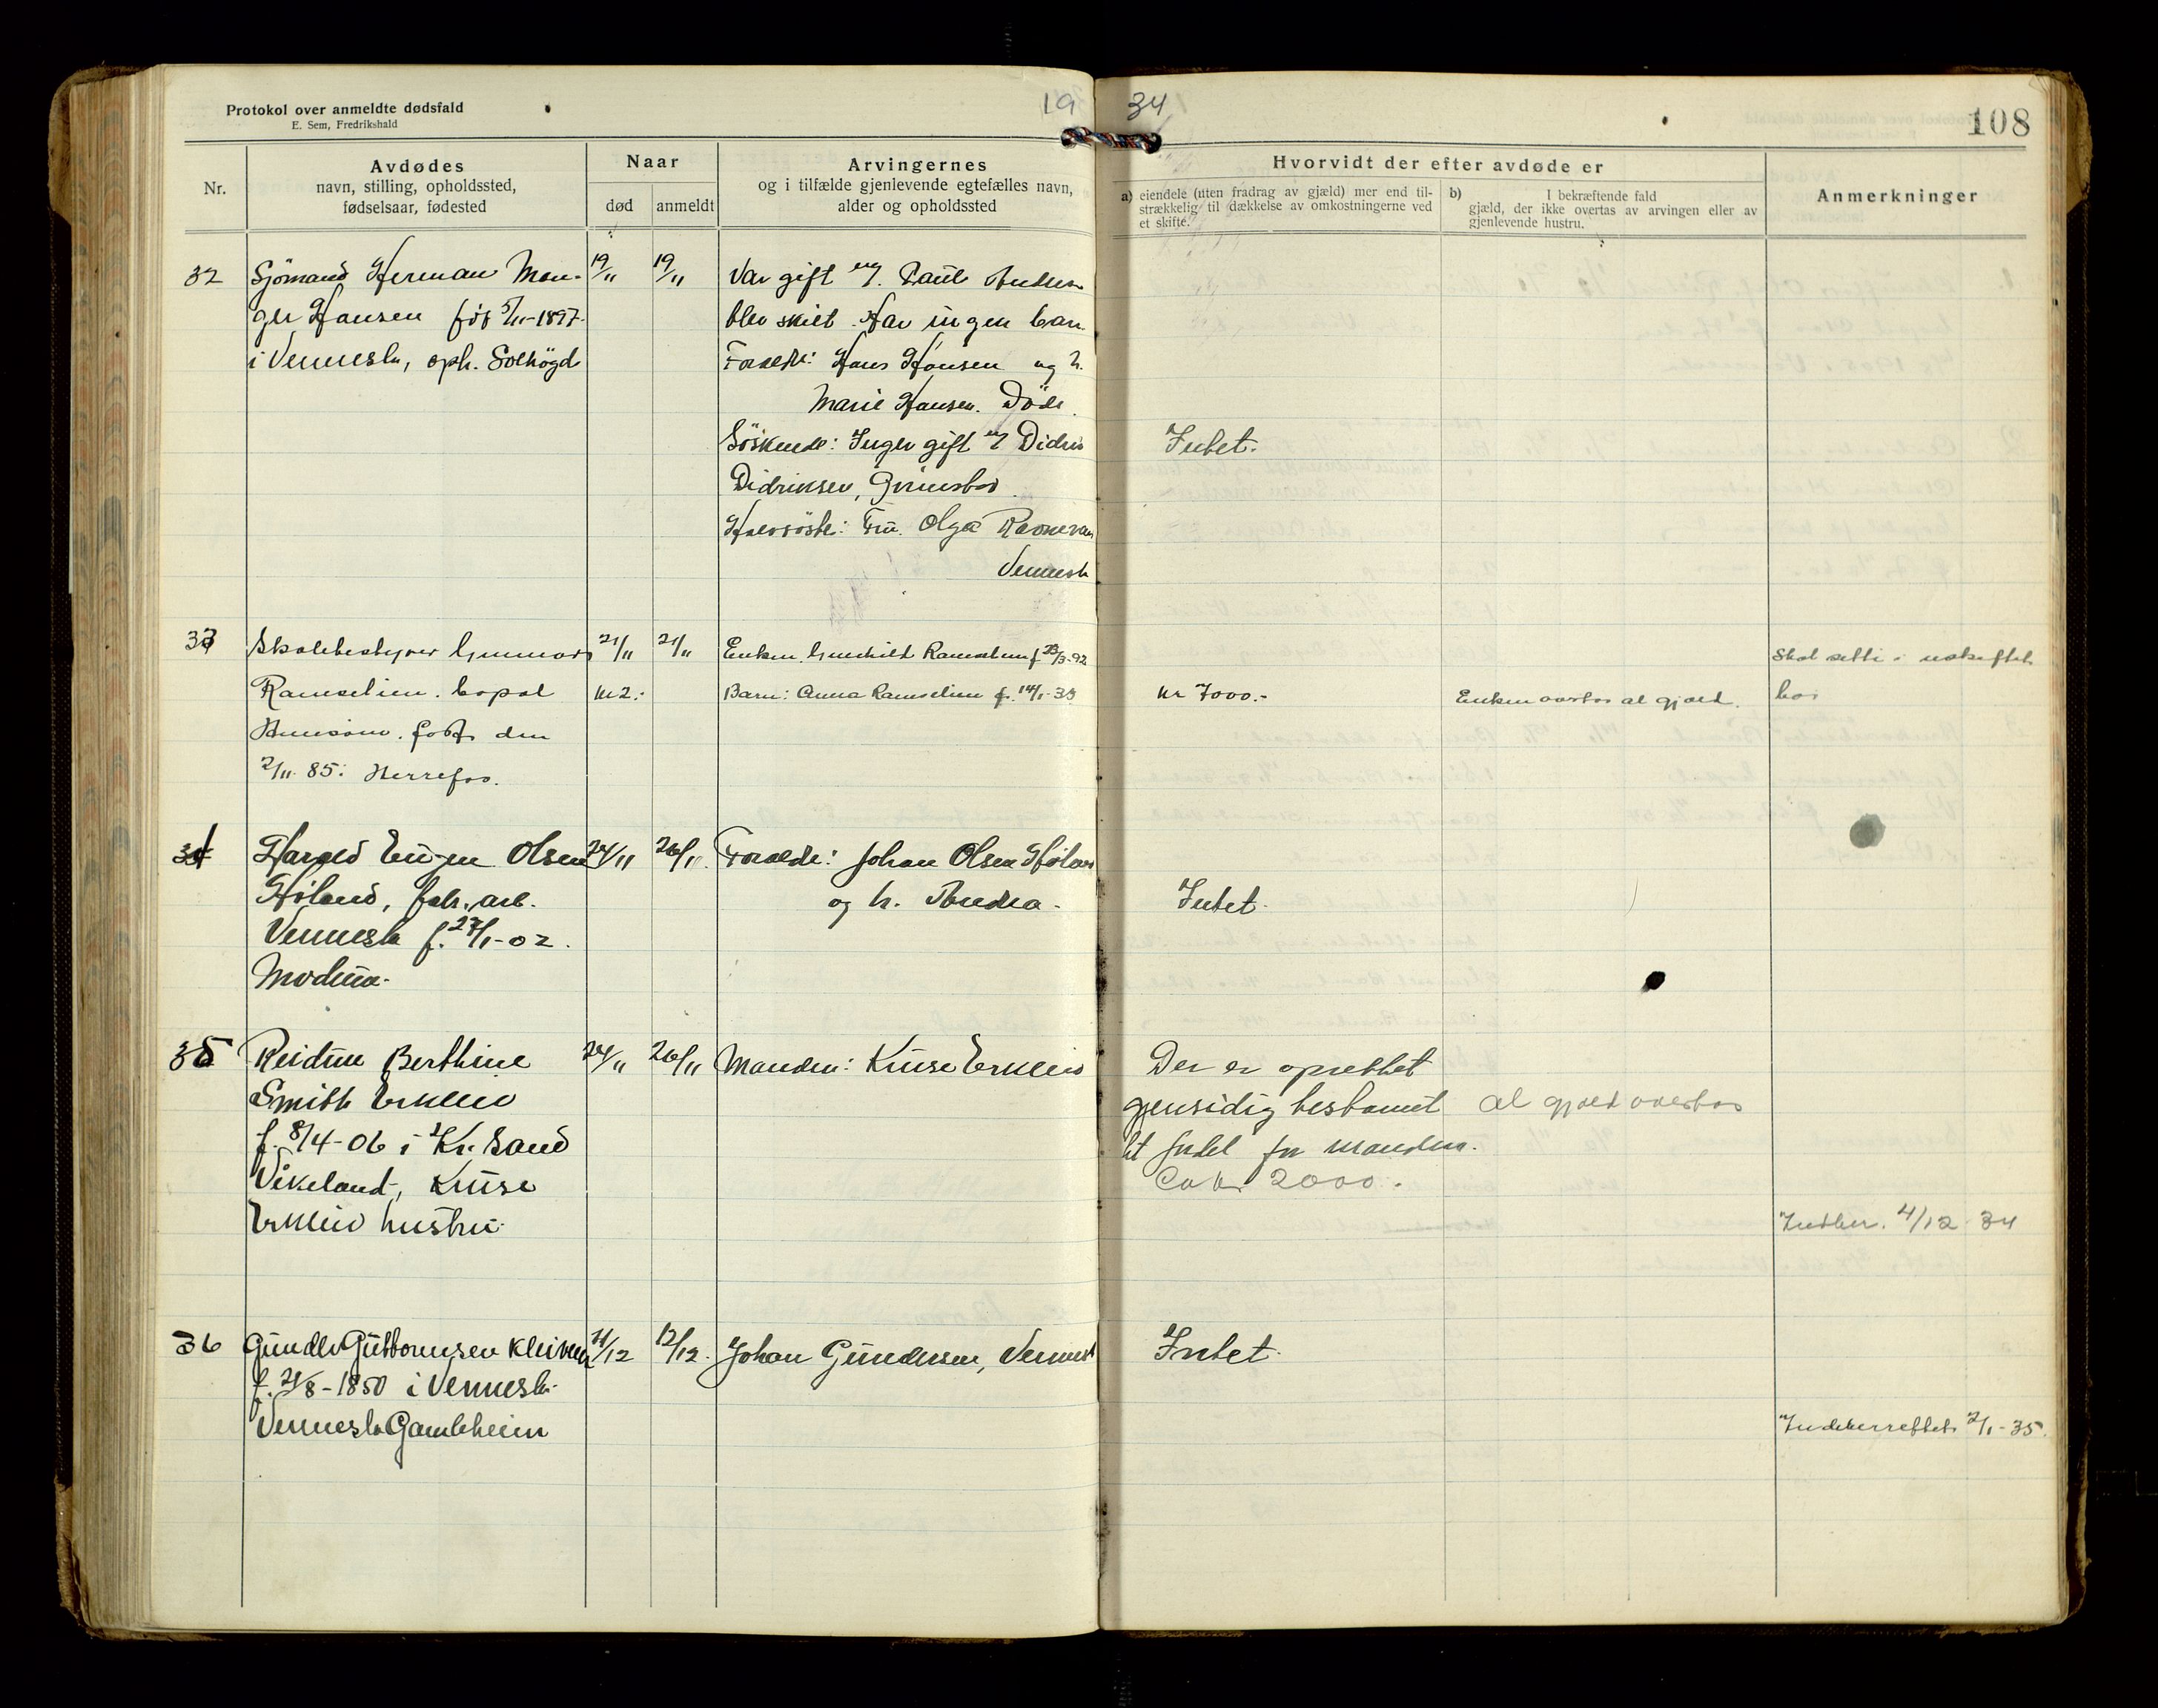 Protokol over anmeldte dødsfald
E. Sem, Fredrikshald
19 34
108
Nr.
Avdødes
navn, stilling, opholdssted,
fødselsaar, fødested
Naar
død
anmeldt
Arvingernes
og i tilfælde gjenlevende egtefælles navn,
alder og opholdssted
Hvorvidt der efter avdøde er
a) eiendele (uten fradrag av gjæld) mer end til-
strækkelig til dækkelse av omkostningerne ved
et skifte.
b) I bekræftende fald
gjæld, der ikke overtas av arvingen eller av
gjenlevende hustru.
Anmerkninger
32
Sjömand Herman
Hansen født 5/11-1897
i Vennesla, oph. Solhögd
19/11
19/11
Var gift m/
blev skilt. Har ingen barn
Forældr: Hans Hansen og h.
Marie Hansen. Döde.
Söskende: Inger gift m/ Didrik
Didriksen, Grimstad
Halvsöster: Fru. Olga
Vennesla
Intet.
33
Skolebestyrer Gunnar
Ramselien. bopæl
Hunsöen. født den
2/11 85. Herrefos.
21/11
kl 2.
21/11
Enken. Gunhild Ramselien f. 23/3-92
Barn: Anna Ramselien f. 14/1-33
kr 7000.-
Enken overtar al gjæld.
Skal sitte i uskiftet
bo
34
Harald Eugen Olsen
Høland, fabr. arb.
Vennesla f. 27/1-02.
Modum.
24/11
26/11.
Forældr: Johan Olsen Høland
og h. Andrea.
Intet.
35
Reidun Berthine
Smith Erkleiv
f. 8/4-06 i Kr. Sand
Vikeland, Kruse
Erkleiv hustru.
24/11
26/11
Manden: Kruse Erkleiv
Der er oprettet
gjensidig testament
til fordel for manden.
Ca kr. 2000.
al gjæld overtas
Indber. 4/12 34
36
Gunder Guttormsen Kleiven
f. 21/8-1850 i Vennesla.
Vennesla Gamleheim
11/12
12/12.
Johan Gundersen, Vennesla
Intet.
Indeberrettet 2/1-35.